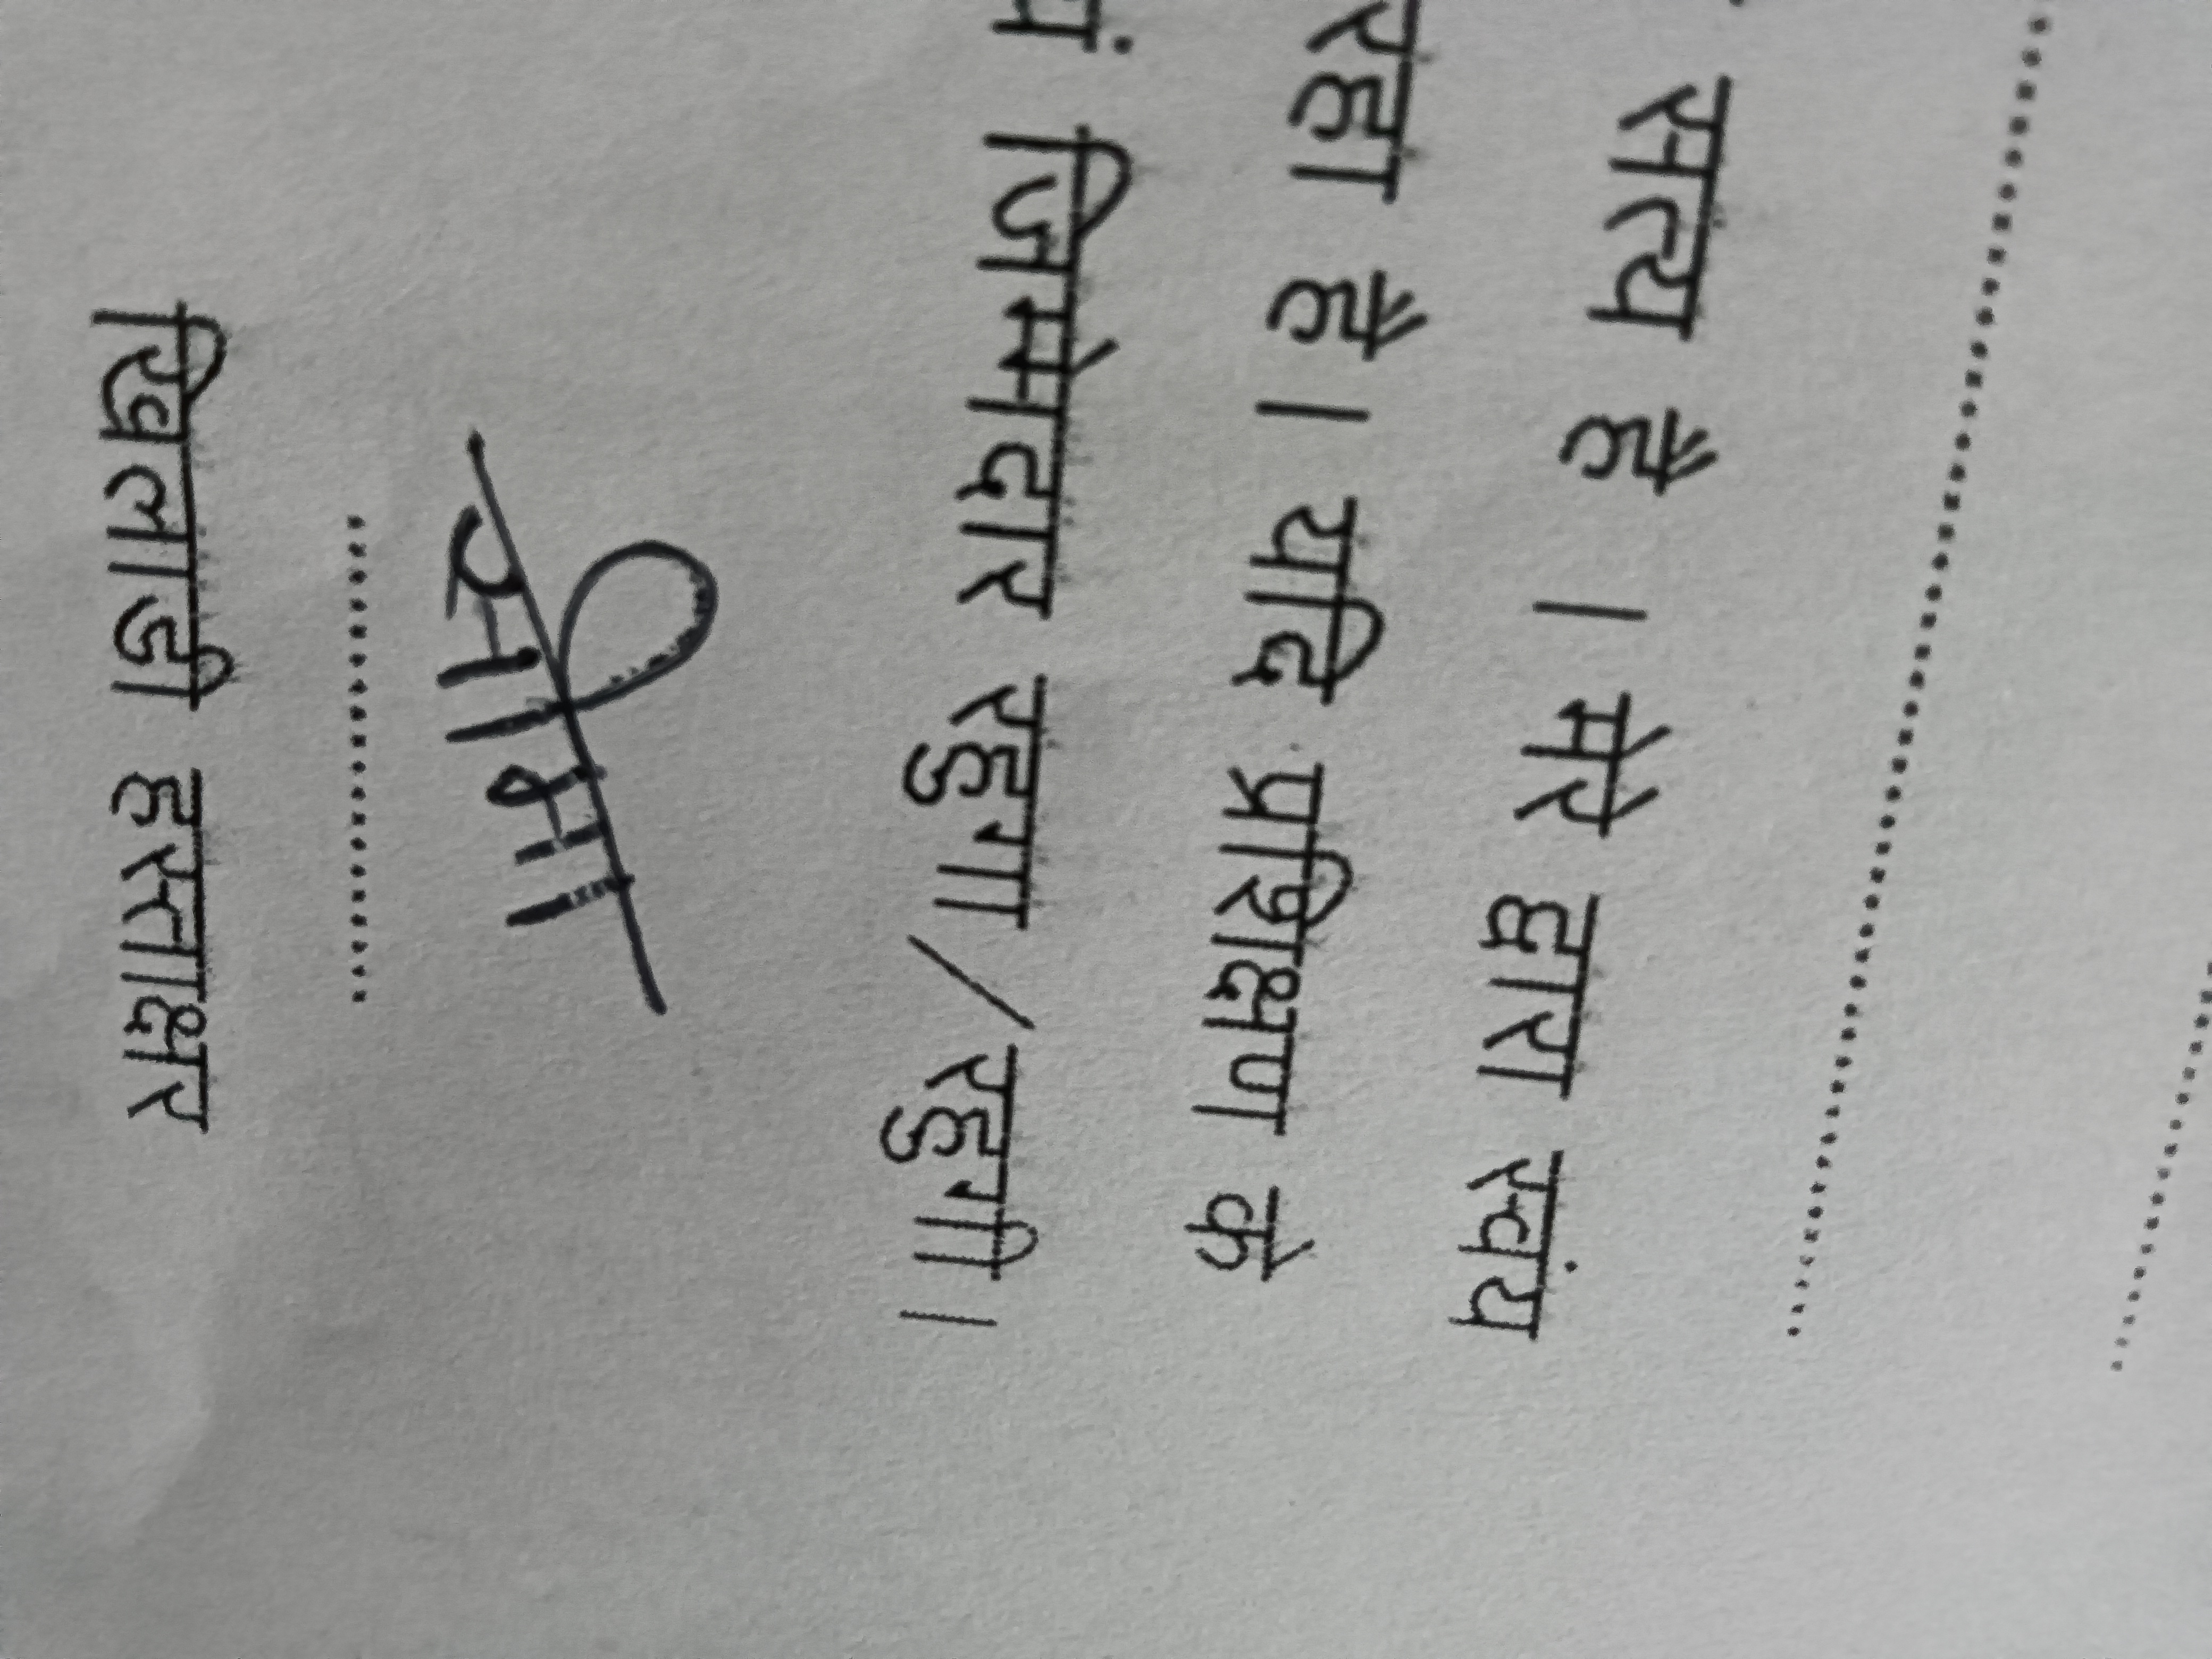 सत्य है । मेरे द्वारा स्वंय
रहा है। यदि प्रशिक्षण के
जिम्मेदार रहुगा / रहुगी।
सीमा
खिलाडी हस्ताक्षर